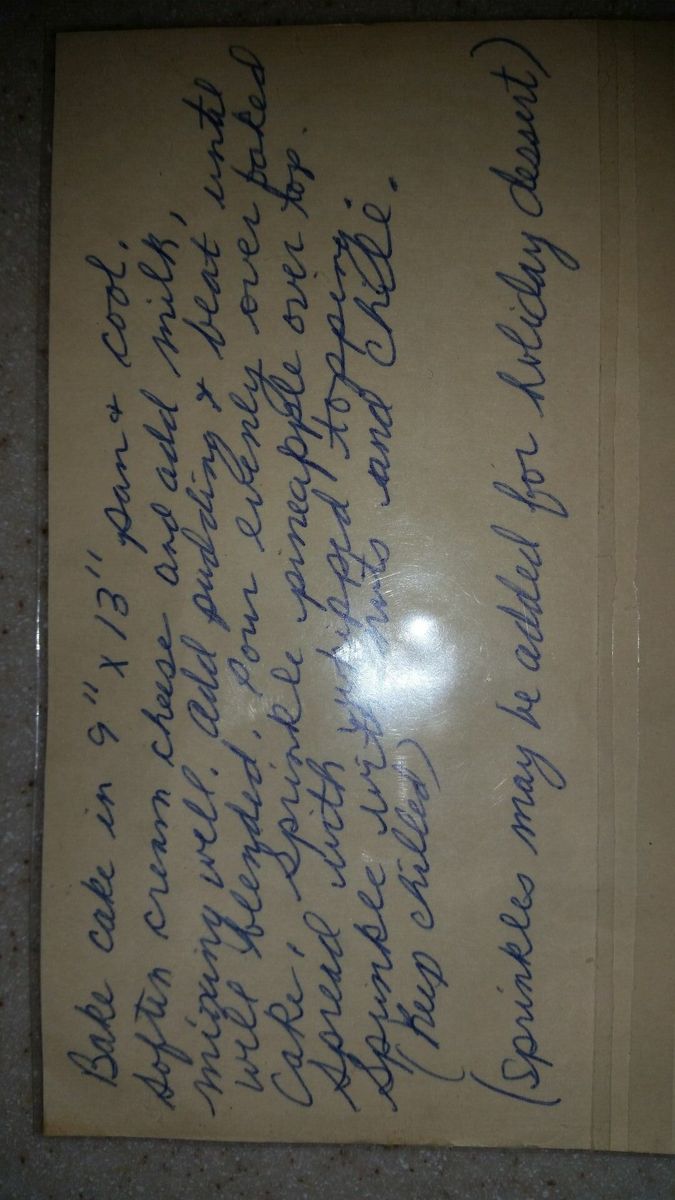 Bake cake in 9" x 13" pan & cool.
Soften cream cheese and add milk,
mixing well. Add pudding & beat until
well blended. Pour evenly over baked
cake. Sprinkle pineapple over top.
Spread with whipped topping.
Sprinkle with nuts and chill.
(Keep chilled)
(Sprinkles may be added for holiday dessert)